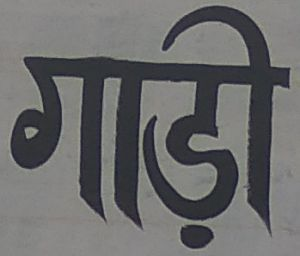 गाड़ी